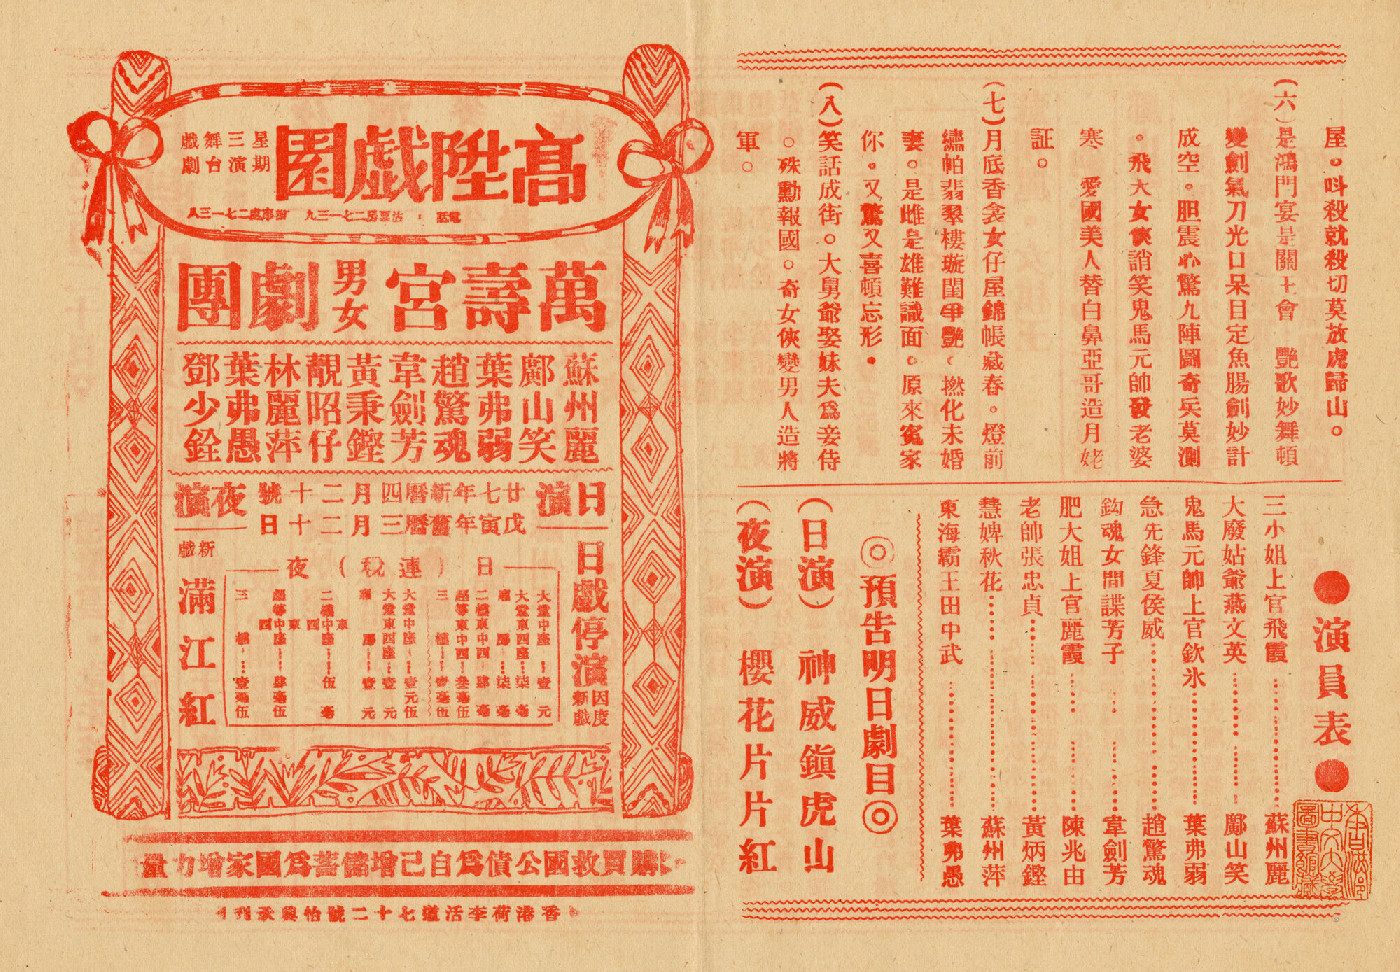 屋。呌殺就殺切莫放虎歸山。
(六)是鴻門宴是關王會 艷歌妙舞頓
變劍氣刀光口呆目定魚腸劍妙計
成空。胆震心驚九陣圖奇兵莫測
。飛大女俠誚笑鬼馬元帥發老婆
寒 愛國美人替白鼻亞哥造月姥
証。
(七)月底香衾女仔屋錦帳藏春。燈前
繡帕翡翠樓璇閨爭艷、撚化未婚
妻。是雌是雄難識面。原來寃家
你。又驚又喜頓忘形。
(八)笑話成街。大舅爺娶妹夫爲妾侍
。殊勳報國。奇女俠變男人造將
軍。
●演員表●
三小姐上官飛霞………蘇州麗
大廢姑爺燕文英………鄺山笑
鬼馬元帥上官欽氷………葉弗弱
急先鋒夏侯威………趙驚魂
鈎魂女間諜芳子………韋劍芳
肥大姐上官麗霞………陳兆由
老帥張忠貞………黃炳鏗
慧婢秋花………蘇州萍
東海霸王田中武………葉弗愚
◎預告明日劇目◎
(日演)神威鎮虎山
(夜演)櫻花片片紅
高陞戲園
星期三演舞台戲劇
電話:沽票房二七一三九 辦事處二七一三八
萬壽宮男女劇團
蘇州麗
鄺山笑
葉弗弱
趙驚魂
韋劍芳
黃秉鏗
靚昭仔
林麗萍
葉弗愚
鄧少銓
日演
廿七年新曆四月二十號
戊寅年舊曆三月二十日
夜演
日戲停演因度新戲
日(連稅)夜
大堂中座……壹元
大堂東四座……柒毫
二樓東中西……肆毫
超等東中西……叁毫伍
三樓……壹毫伍
大堂中座……壹元伍
大堂東西座……壹元
二樓中座……伍毫
超等中座……肆毫伍
三樓……壹毫伍
新戲
滿江紅
購買救國公債爲自己增儲蓄爲國家增力量
香港荷李活道七十二號怡興承刊